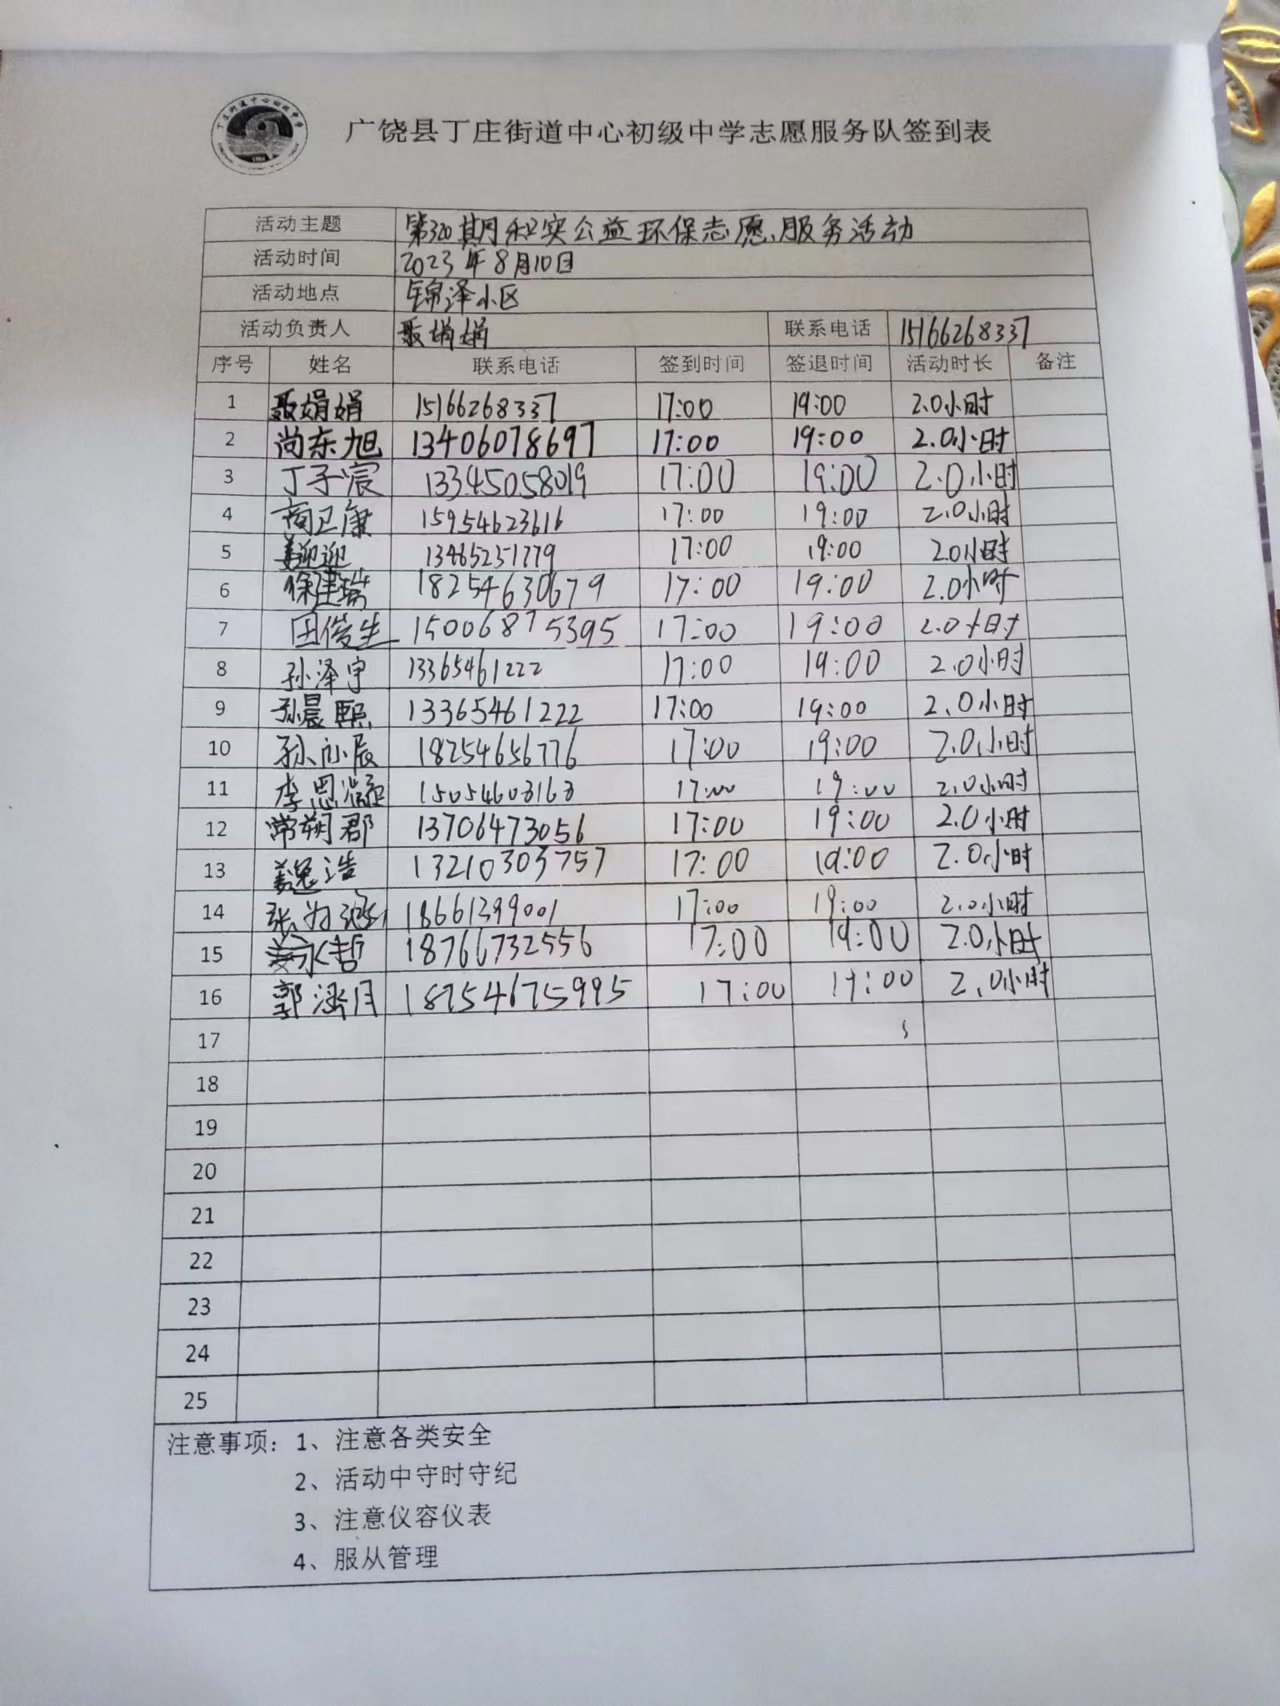 广饶县丁庄街道中心初级中学志愿服务队签到表
活动主题 第320期和实公益环保志愿服务活动
活动时间 2023年8月10日
活动地点 锦泽小区
活动负责人 聂娟娟 联系电话 15166268337
序号 姓名 联系电话 签到时间 签退时间 活动时长 备注
1 聂娟娟 15166268337 17:00 19:00 2.0小时
2 尚东旭 13406078697 17:00 19:00 2.0小时
3 丁子宸 13345058019 17:00 19:00 2.0小时
4 商卫康 15954623616 17:00 19:00 2.0小时
5 姜迎迎 13465251779 17:00 19:00 2.0小时
6 徐建瑞 18254630679 17:00 19:00 2.0小时
7 田俊生 15006875395 17:00 19:00 2.0小时
8 孙泽宇 13365461222 17:00 19:00 2.0小时
9 孙晨熙 13365461222 17:00 19:00 2.0小时
10 孙辰 18254656776 17:00 19:00 2.0小时
11 李思 15054603163 17:00 19:00 2.0小时
12 常朔郡 13706473056 17:00 19:00 2.0小时
13 姜逸浩 13210303757 17:00 19:00 2.0小时
14 张 18661399001 17:00 19:00 2.0小时
15 姜永哲 18766732556 17:00 19:00 2.0小时
16 郭涵月 18754675995 17:00 19:00 2.0小时
17
18
19
20
21
22
23
24
25
注意事项：1、注意各类安全
2、活动中守时守纪
3、注意仪容仪表
4、服从管理